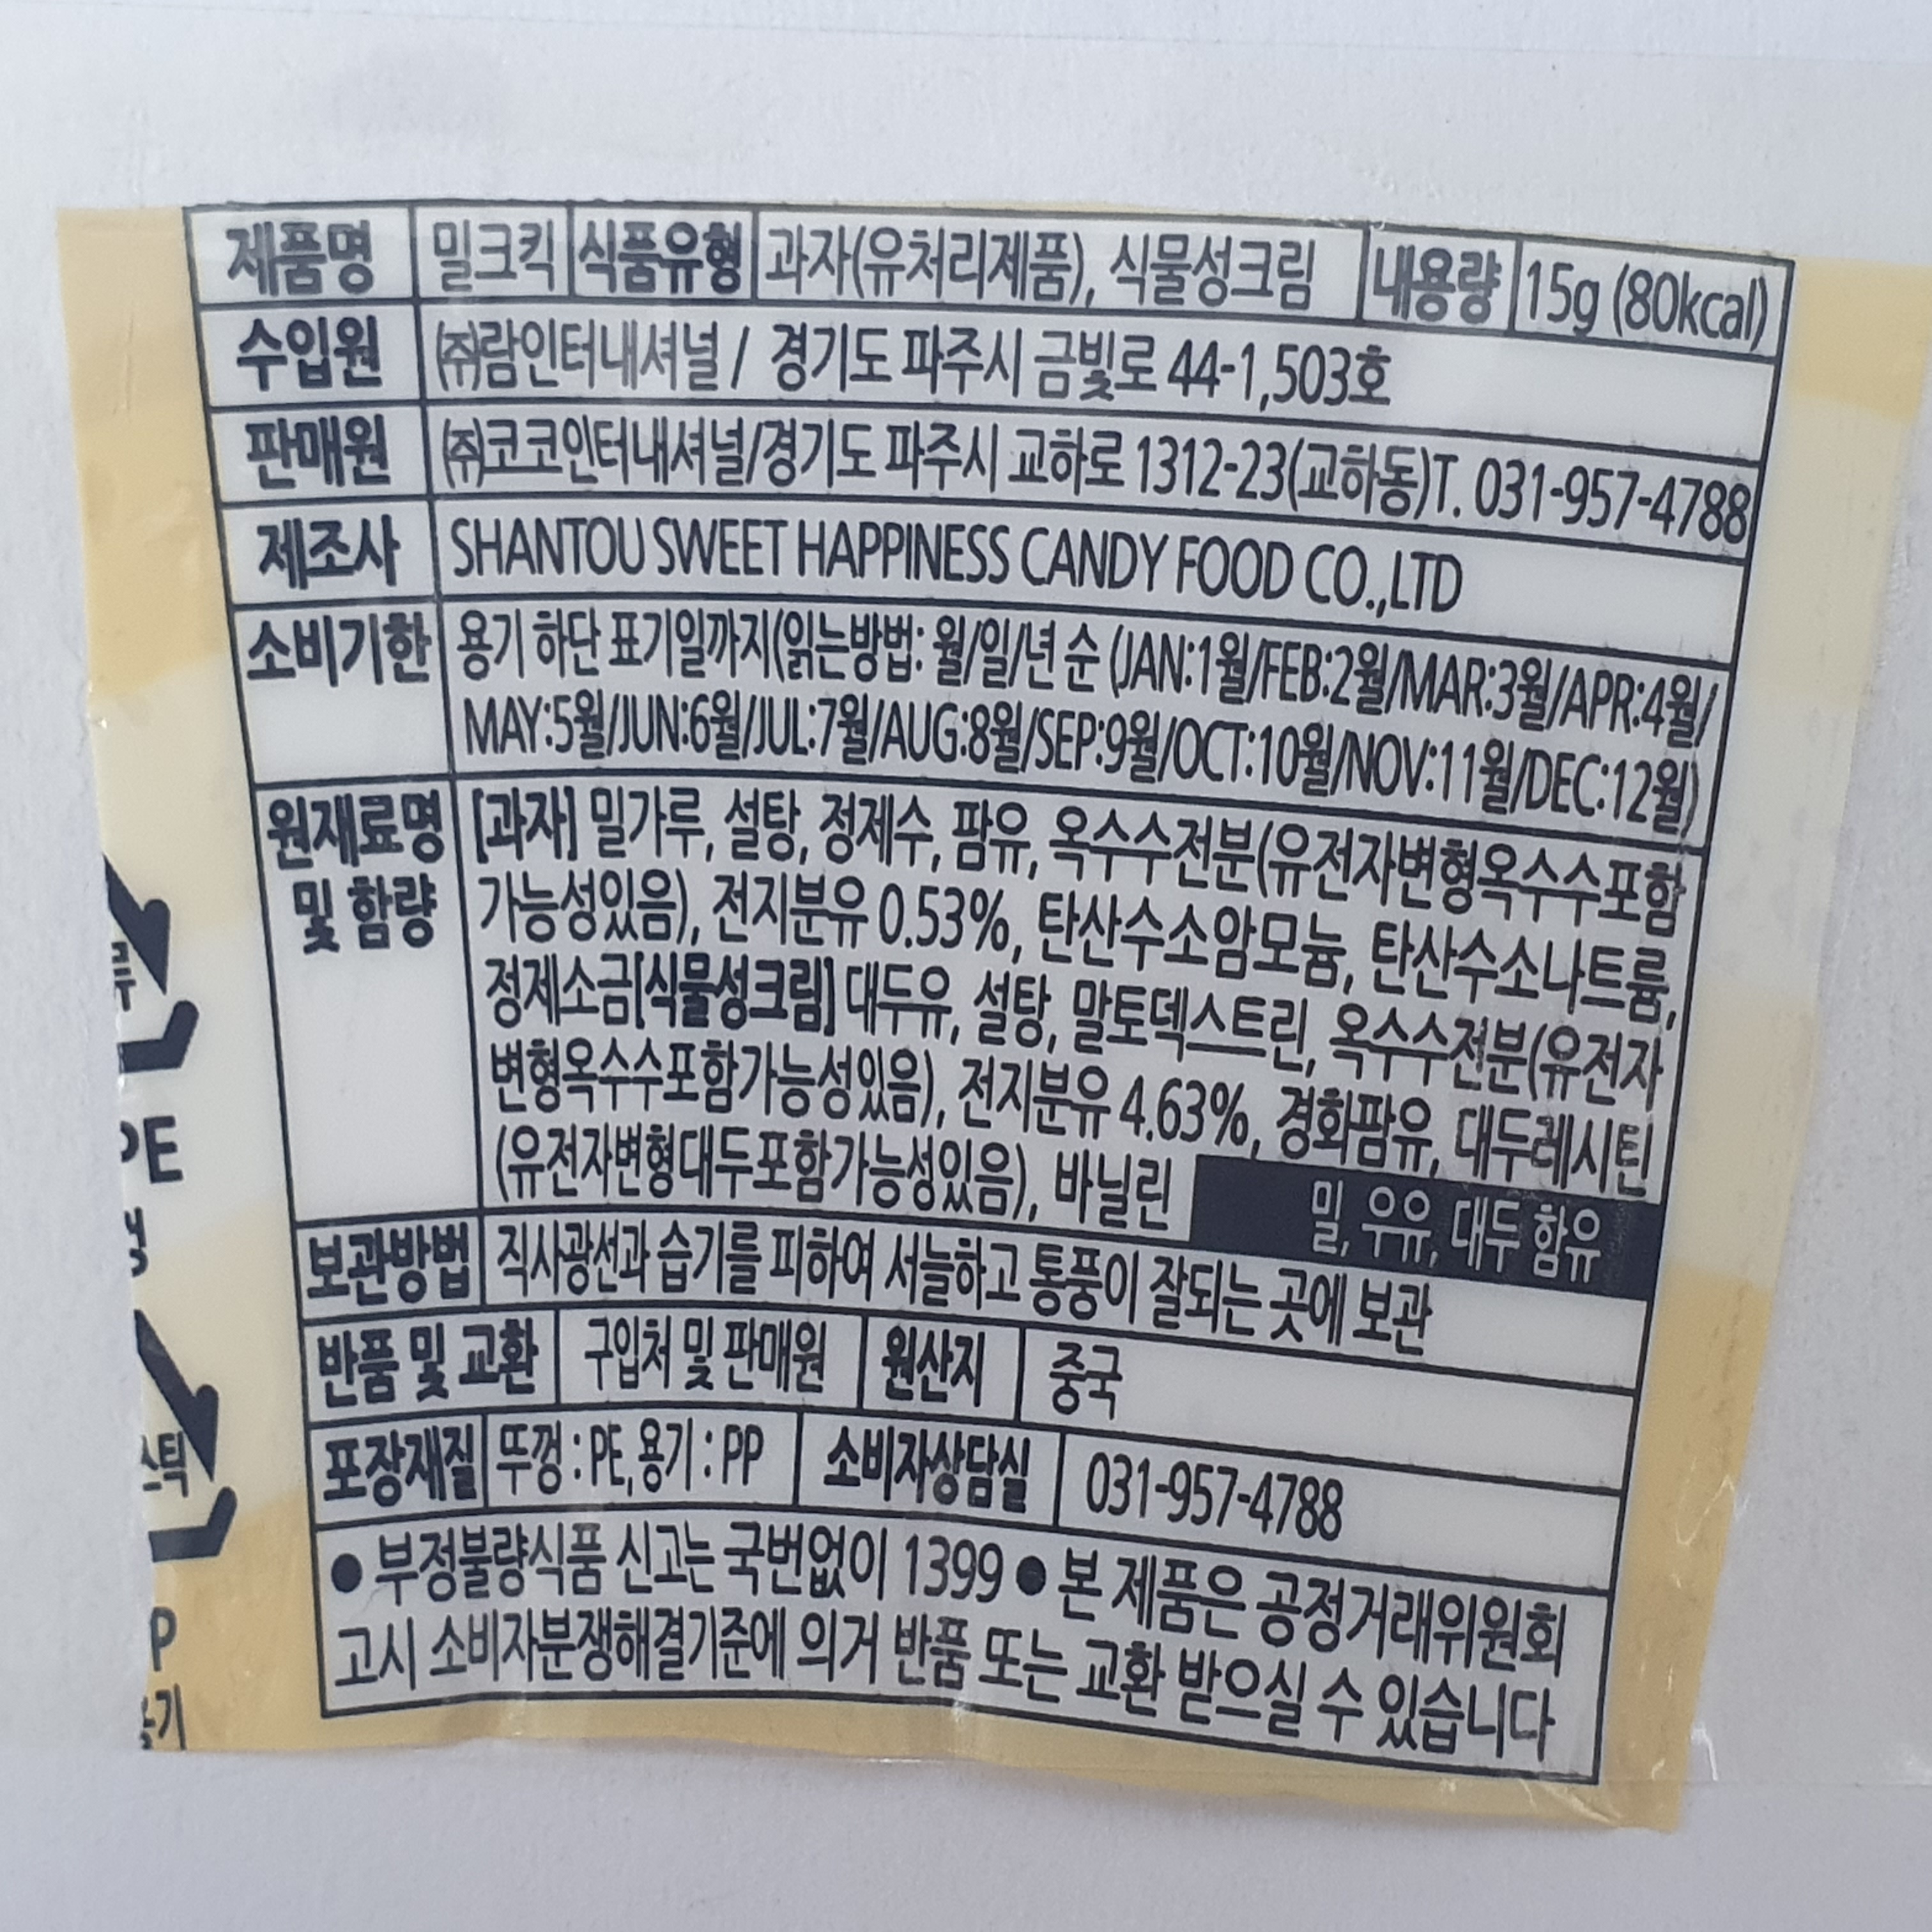 제품명 밀크킥 식품유형 과자(유처리제품), 식물성크림 내용량 15g (80kcal)
수입원 ㈜람인터내셔널 / 경기도 파주시 금빛로 44-1,503호
판매원 ㈜코코인터내셔널/경기도 파주시 교하로 1312-23(교하동)T. 031-957-4788
제조사 SHANTOU SWEET HAPPINESS CANDY FOOD CO.,LTD
소비기한 용기 하단 표기일까지(읽는방법: 월/일/년 순 (JAN:1월/FEB:2월/MAR:3월/APR:4월/
MAY:5월/JUN:6월/JUL:7월/AUG:8월/SEP:9월/OCT:10월/NOV:11월/DEC:12월)
원재료명 [과자] 밀가루, 설탕, 정제수, 팜유, 옥수수전분(유전자변형옥수수포함
및 함량 가능성있음), 전지분유 0.53%, 탄산수소암모늄, 탄산수소나트륨,
정제소금[식물성크림] 대두유, 설탕, 말토덱스트린, 옥수수전분(유전자
변형옥수수포함가능성있음), 전지분유 4.63%, 경화팜유, 대두레시틴
(유전자변형대두포함가능성있음), 바닐린 밀, 우유, 대두 함유
보관방법 직사광선과 습기를 피하여 서늘하고 통풍이 잘되는 곳에 보관
반품 및 교환 구입처 및 판매원 원산지 중국
포장재질 뚜껑 : PE, 용기 : PP 소비자상담실 031-957-4788
● 부정불량식품 신고는 국번없이 1399 ● 본 제품은 공정거래위원회
고시 소비자분쟁해결기준에 의거 반품 또는 교환 받으실 수 있습니다